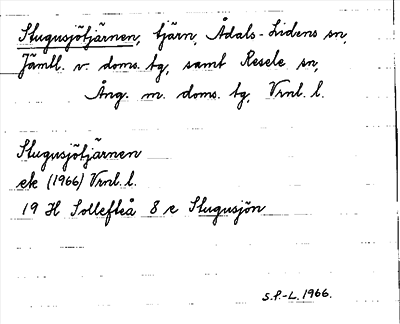 Stugusjötjärnen, tjärn, Ådals-Lidens sn,
Jämtl. v. doms. tg, samt Resele sn,
Ång. m. doms. tg, Vrnl. l.
Stugusjötjärnen
ek (1966) Vrnl. l.
19 H Sollefteå 8 e Stugusjön
S.P.-L. 1966.